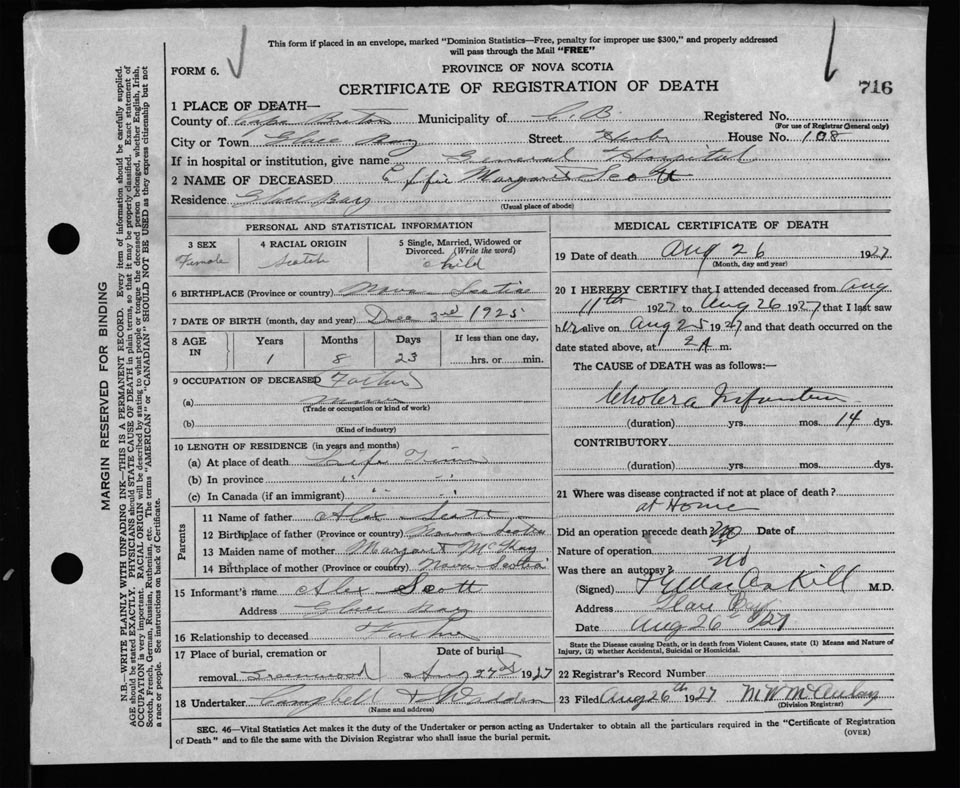 This form if placed in an envelope, marked "Dominion Statistics—Free, penalty for improper use $300," and properly addressed
will pass through the Mail "FREE"
FORM 6.
PROVINCE OF NOVA SCOTIA
CERTIFICATE OF REGISTRATION OF DEATH
716
1 PLACE OF DEATH—
County of Cape Breton Municipality of C. B. Registered No.
(For use of Registrar General only)
City or Town Glace Bay Street House No. 108
If in hospital or institution, give name General Hospital
2 NAME OF DECEASED Effie Margaret Scott
Residence Glace Bay
(Usual place of abode)
PERSONAL AND STATISTICAL INFORMATION
3 SEX
Female
4 RACIAL ORIGIN
Scotch
5 Single, Married, Widowed or
Divorced. (Write the word)
Child
6 BIRTHPLACE (Province or country) Nova Scotia
7 DATE OF BIRTH (month, day and year) Dec 3rd 1925
8 AGE
IN
Years
1
Months
8
Days
23
If less than one day,
hrs. or min.
9 OCCUPATION OF DECEASED Father
(a) Miner
(Trade or occupation or kind of work)
(b)
(Kind of industry)
10 LENGTH OF RESIDENCE (in years and months)
(a) At place of death Life Time
(b) In province " "
(c) In Canada (if an immigrant) " "
Parents
11 Name of father Alex Scott
12 Birthplace of father (Province or country) Nova Scotia
13 Maiden name of mother Margaret
14 Birthplace of mother (Province or country) Nova Scotia
15 Informant's name Alex Scott
Address Glace Bay
16 Relationship to deceased Father
17 Place of burial, cremation or
removal Greenwood
Date of burial
Aug 1927
18 Undertaker Campbell
(Name and address)
MEDICAL CERTIFICATE OF DEATH
19 Date of death Aug 26 1927
(Month, day and year)
20 I HEREBY CERTIFY that I attended deceased from Aug
11th 1927 to Aug 26 1927 that I last saw
her alive on Aug 25 1927 and that death occurred on the
date stated above, at 2 A m.
The CAUSE OF DEATH was as follows:—
Cholera Infantum
(duration) yrs. mos. 14 dys.
CONTRIBUTORY
(duration) yrs. mos. dys.
21 Where was disease contracted if not at place of death?
at Home
Did an operation precede death? No Date of
Nature of operation
Was there an autopsy? No
(Signed) M.D.
Address Glace Bay
Date Aug 26 /27
State the Disease causing Death, or in death from Violent Causes, state (1) Means and Nature of
Injury, (2) whether Accidental, Suicidal or Homicidal.
22 Registrar's Record Number
23 Filed Aug 26th 1927 M W McAulay
(Division Registrar)
SEC. 46—Vital Statistics Act makes it the duty of the Undertaker or person acting as Undertaker to obtain all the particulars required in the "Certificate of Registration
of Death" and to file the same with the Division Registrar who shall issue the burial permit.
(OVER)
MARGIN RESERVED FOR BINDING
N.B.—WRITE PLAINLY WITH UNFADING INK—THIS IS A PERMANENT RECORD. Every item of information should be carefully supplied.
AGE should be stated EXACTLY. PHYSICIANS should STATE CAUSE OF DEATH in plain terms, so that it may be properly classified. Exact statement of
OCCUPATION is very important. RACIAL ORIGIN will be described by stating to what people or tongue the deceased person belonged, whether English, Irish,
Scotch, French, German, Russian, Ruthenian, etc. The terms "AMERICAN" or "CANADIAN" SHOULD NOT BE USED as they express citizenship but not
a race or people. See instructions on back of Certificate.